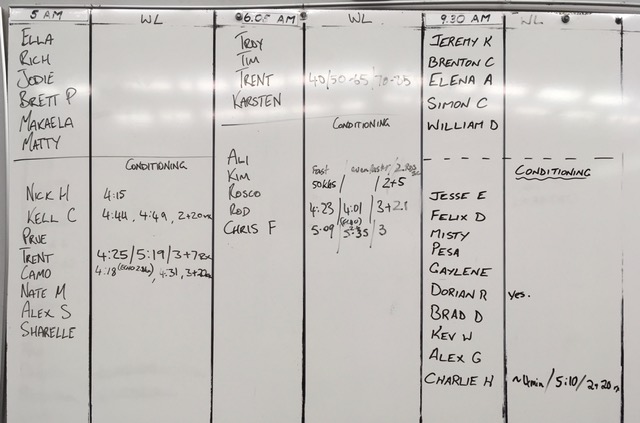 5 AM WL
ELLA
RICH
JODIE
BRETT P
MAKAELA
MATTY
CONDITIONING
NICK H 4:15
KELL C 4:44, 4:49, 2+20
PRUE
TRENT 4:25/5:19/3+78
CAMO 4:18 4:31, 3+
NATE M
ALEX S
SHARELLE
6.05 AM WL
TROY
TIM
TRENT 40/50-65/70-75
KARSTEN
CONDITIONING
ALI
KIM Fast
ROSCO 50kgs/ /2+5
ROD 4:23/4:01/3+21
CHRIS F 5:09/5:35/3
9.30 AM WL
JEREMY K
BRENTON C
ELENA A
SIMON C
WILLIAM D
CONDITIONING
JESSE E
FELIX D
MISTY
PESA
GAYLENE
DORIAN R yes.
BRAD D
KEV W
ALEX G
CHARLIE H ~4min/5:10/2+20